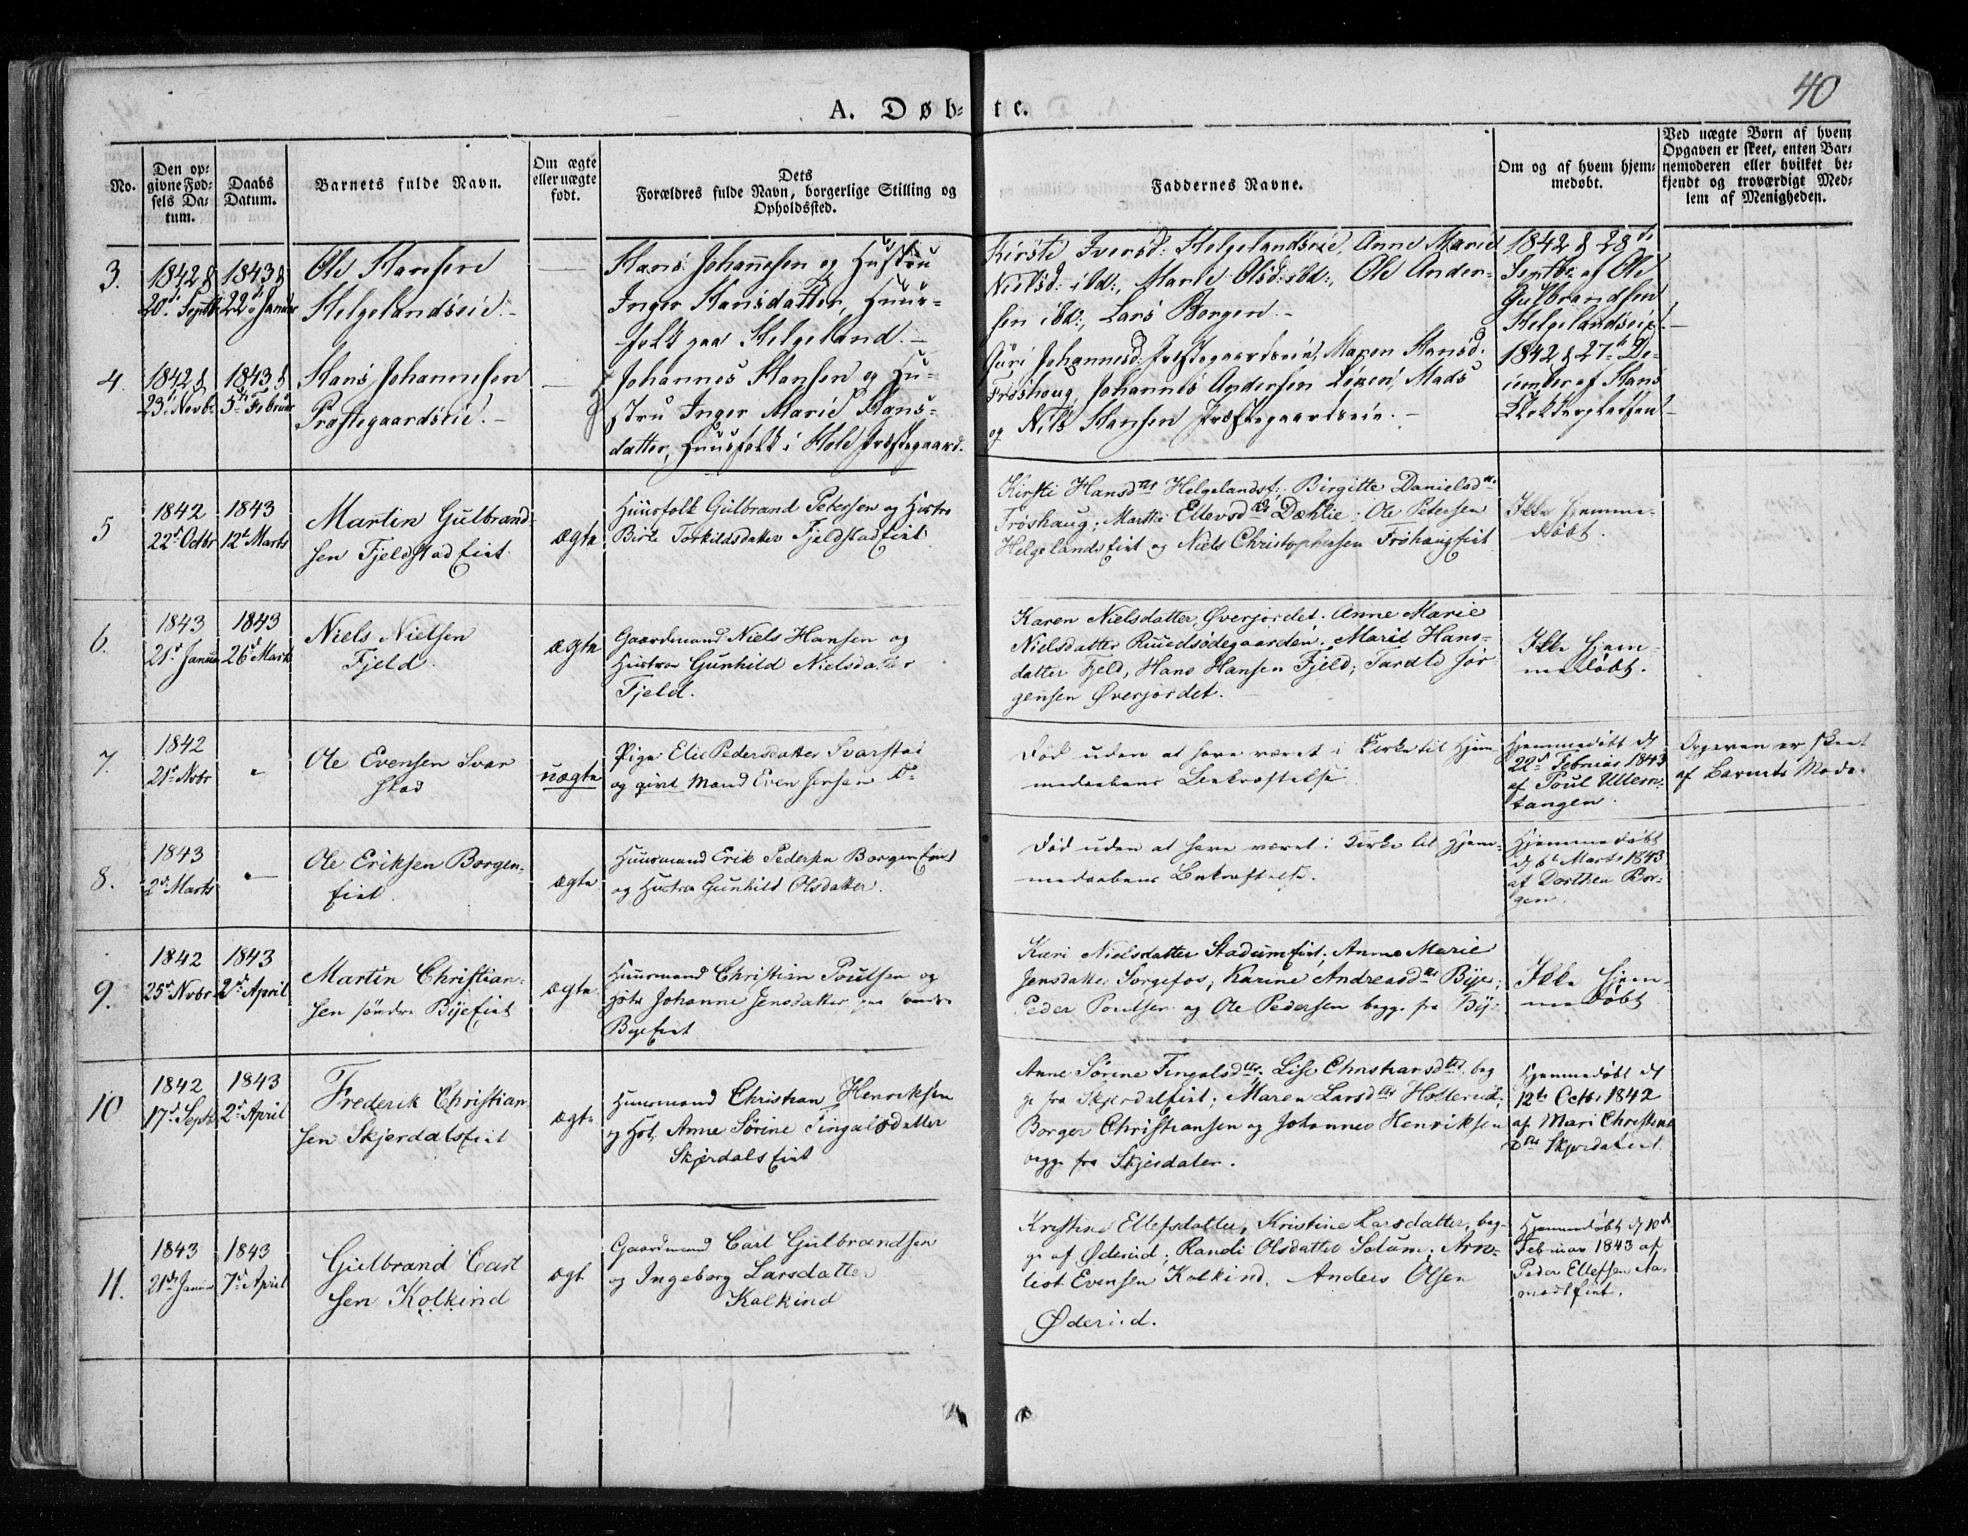 40
A. Døbte.
No.
Den opgivne Fødsels Datum.
Daabs Datum.
Barnets fulde Navn.
Om ægte eller uægte født.
Dets Forældres fulde Navn, borgerlige Stilling og Opholdssted.
Faddernes Navne.
Om og af hvem hjemmedøbt.
Ved uægte Børn af hvem Opgaven er skeet, enten Barnemoderen eller hvilket bekjendt og troværdigt Medlem af Menigheden.
3.
1842 d
20de Septb
1843 d
22de Januar
Ole Hansen
Helgelandseie.-
Hans Johannesen og Hustru
Inger Hansdatter, Huus-
folk paa Helgeland.-
Kirsti Iversd: Helgelandseie, Anne Marie
Nielsd: ibd:, Marte Olsd: ibd:, Ole Ander-
sen ibd:, Lars Borgen.-
1842 d 28de
Septbr af Ole
Gulbrandsen
Helgelandseie.-
4.
1842 d
23de Novb.
1843 d
5te Februar
Hans Johannesen
Præstegaardseie.-
Johannes Hansen og Hu-
stru Inger Marie Hans-
datter, Huusfolk i Hole Præstegaard.
Guri Johannesd: Præstegaardseie, Maren Hansd.
Frøshaug, Johannes Andersen Løken, Mads
og Nils Hansen Præstegaardseie.-
1842 d 27de De-
cember af Hans
5
1842
22de Octbr
1843
12te Marts
Martin Gulbrand-
sen Fjeldstadeiet
ægte
Huusfolk Gulbrand Petersen og Hustru
Birte Torkildsdatter Fjeldstadeiet
Kirsti Hansdtr Helgelandsf; Birgitte Danielsdtr
Frøshaug; Marthe Ellevsdtr Dæhlie; Ole Petersen
Helgelandseiet og Niels Christophersen Frøhaugeiet
Ikke hjemme-
døbt.
6.
1843
21de Januar
1843
26de Marts
Niels Nielsen
Fjeld.
ægte
Gaardmand Niels Hansen og
Hustroe Gunhild Nielsdatter
Fjeld.
Karen Nielsdatter Øverjordet; Anne Marie
Nielsdatter Ruudsødegaarden; Marit Hans-
datter Fjeld, Hans Hansen Fjeld; Jør-
gensen Øverjordet.
Ikke hjem-
medøbt.
7.
1842
21de Nvbr
"
Ole Evensen Svar
stad
uægte
Pige Elie Pedersdatter Svarstad
og givt Mand Even Jensen Do
Død uden at have været i Kirke til Hjem
medaabens Bekræftelse
Hjemmedøbt d
22de Februar 1843
af Poul Ullern-
tangen.
Opgaven er skeet
af Barnets Mode.
8.
1843
2de Marts
"
Ole Eriksen Borgen-
eiet.
ægte
Huusmand Erik Pedersen Borgeneiet
og Hustroe Gunhild Olsdatter.
Død uden at have været i Kirke til Hjem-
medaabens Bekræftelse.
Hjemmedøbt
d 6te Marts 1843
af Dorthea Bor-
gen.
9.
1842
25de Nvbr
1843
2de April
Martin Christian-
sen søndre Byeeiet
ægte
Huusmand Christian Poulsen og
Hstr Johanne Jensdatter paa søndre
Byeeiet
Kari Nielsdatter Stadumeiet; Anne Marie
Jensdatter Sørgefos; Karine Andreasdtr Bye;
Peder Poulsen og Ole Pedersen begge fra By-
Ikke hjem-
medøbt
10
1842
17de Septb
1843
2de April
Frederik Christian
sen Skjerdalseiet
ægte
Huusmand Christian Henriksen
og Hst. Anne Sørine Fingalsdatter
Skjerdalseiet
Anne Sørine Fingalsdtr; Lise Christiansdtr beg
ge fra Skjerdaleiet; Maren Larsdtr Hollerud;
Borger Christiansen og Johannes Henriksen
begge fra Skjerdalen.
Hjemmedøbt d
12te Octb. 1842
af Mari Christians
Dtr Skjerdaleiet
11.
1843
21de Januar
1843
7de April
Gulbrand Carl
sen Kolkind
ægte
Gaardmand Carl Gulbrandsen
og Ingeborg Larsdatter
Kolkind
Kristine Ellefsdatter, Kristine Larsdatter, beg-
ge af Øderud; Randi Olsdatter Solum; Arn-
Evensen Kolkind, Anders Olsen
Øderud.
Hjemmedøbt d 10de
Februar 1843 af
Peder Ellefsen Aa-